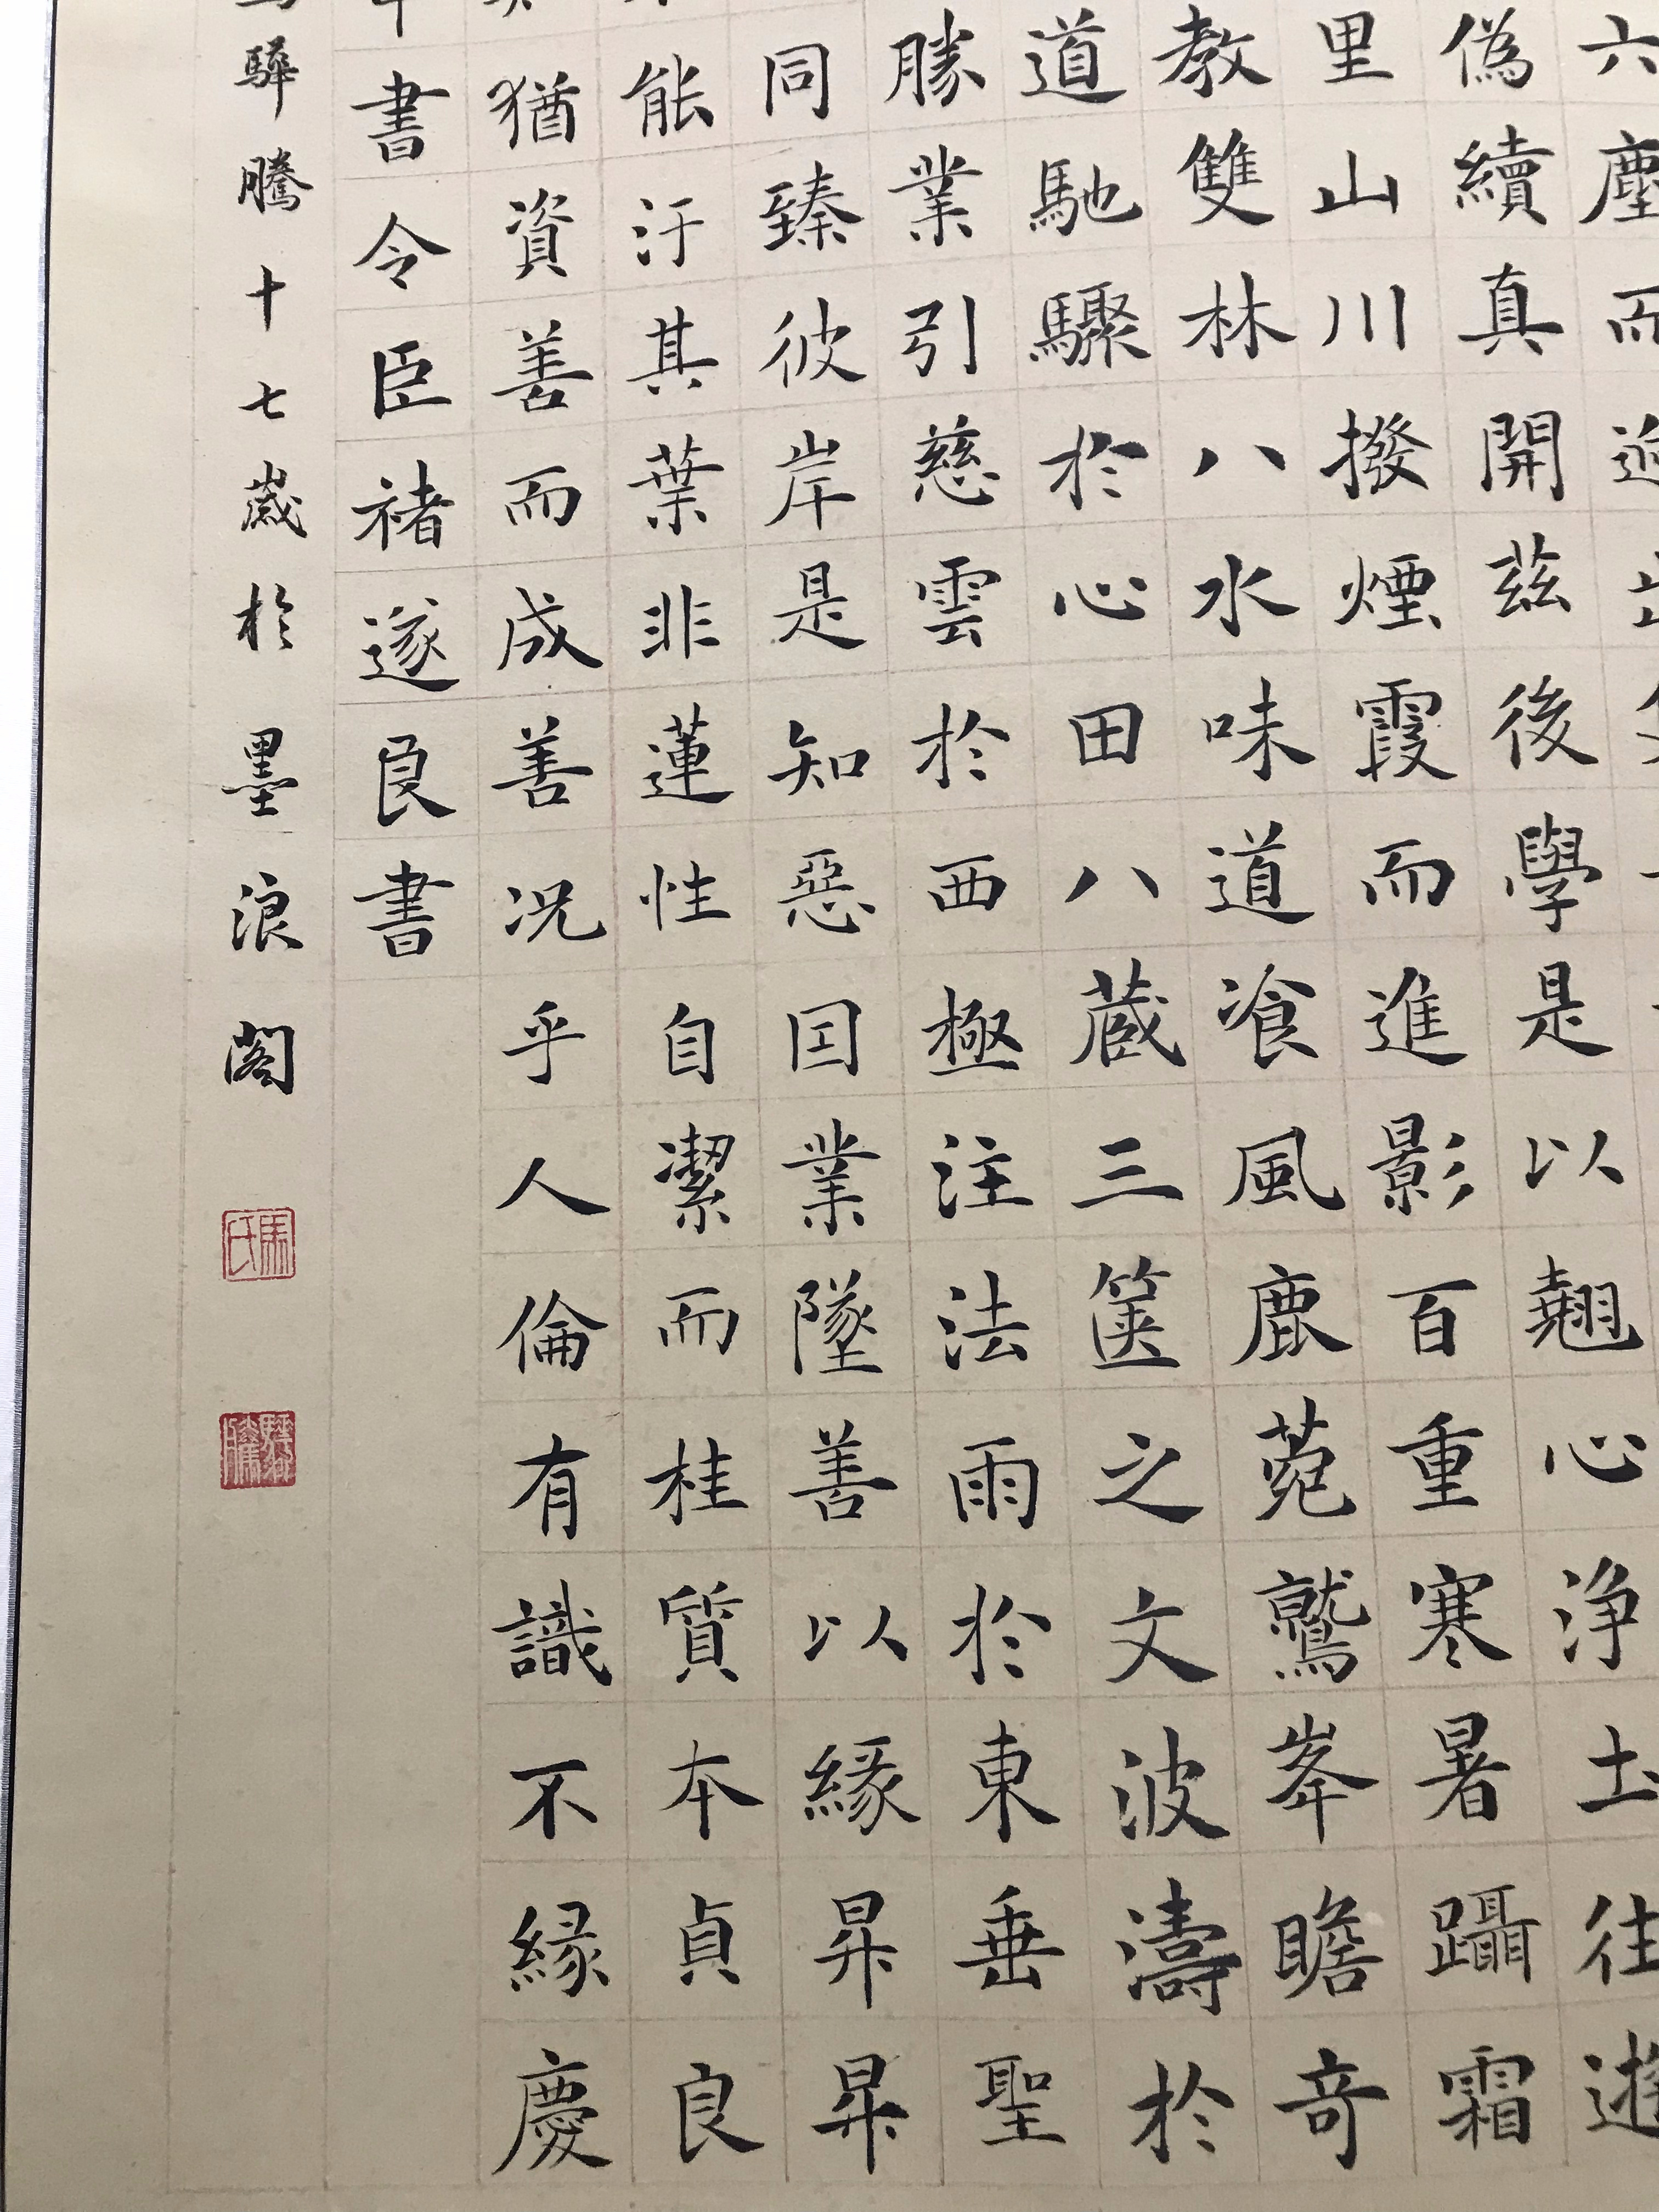 六塵而迥出
偽續真開茲後學是以翹心浄土往遊
里山川撥煙霞而進影百重寒暑躡霜
教雙林八水味道飡風鹿菀鷲峯瞻奇
道馳驟於心田八蔵三篋之文波濤於
勝業引慈雲於西極注法雨於東垂聖
同臻彼岸是知惡囙業墜善以緣昇昇
能汙其葉非蓮性自潔而桂質本貞良
猶資善而成善況乎人倫有識不緣慶
書令臣褚遂良書
馬驊騰十七歲於墨浪閣
馬氏
驊騰